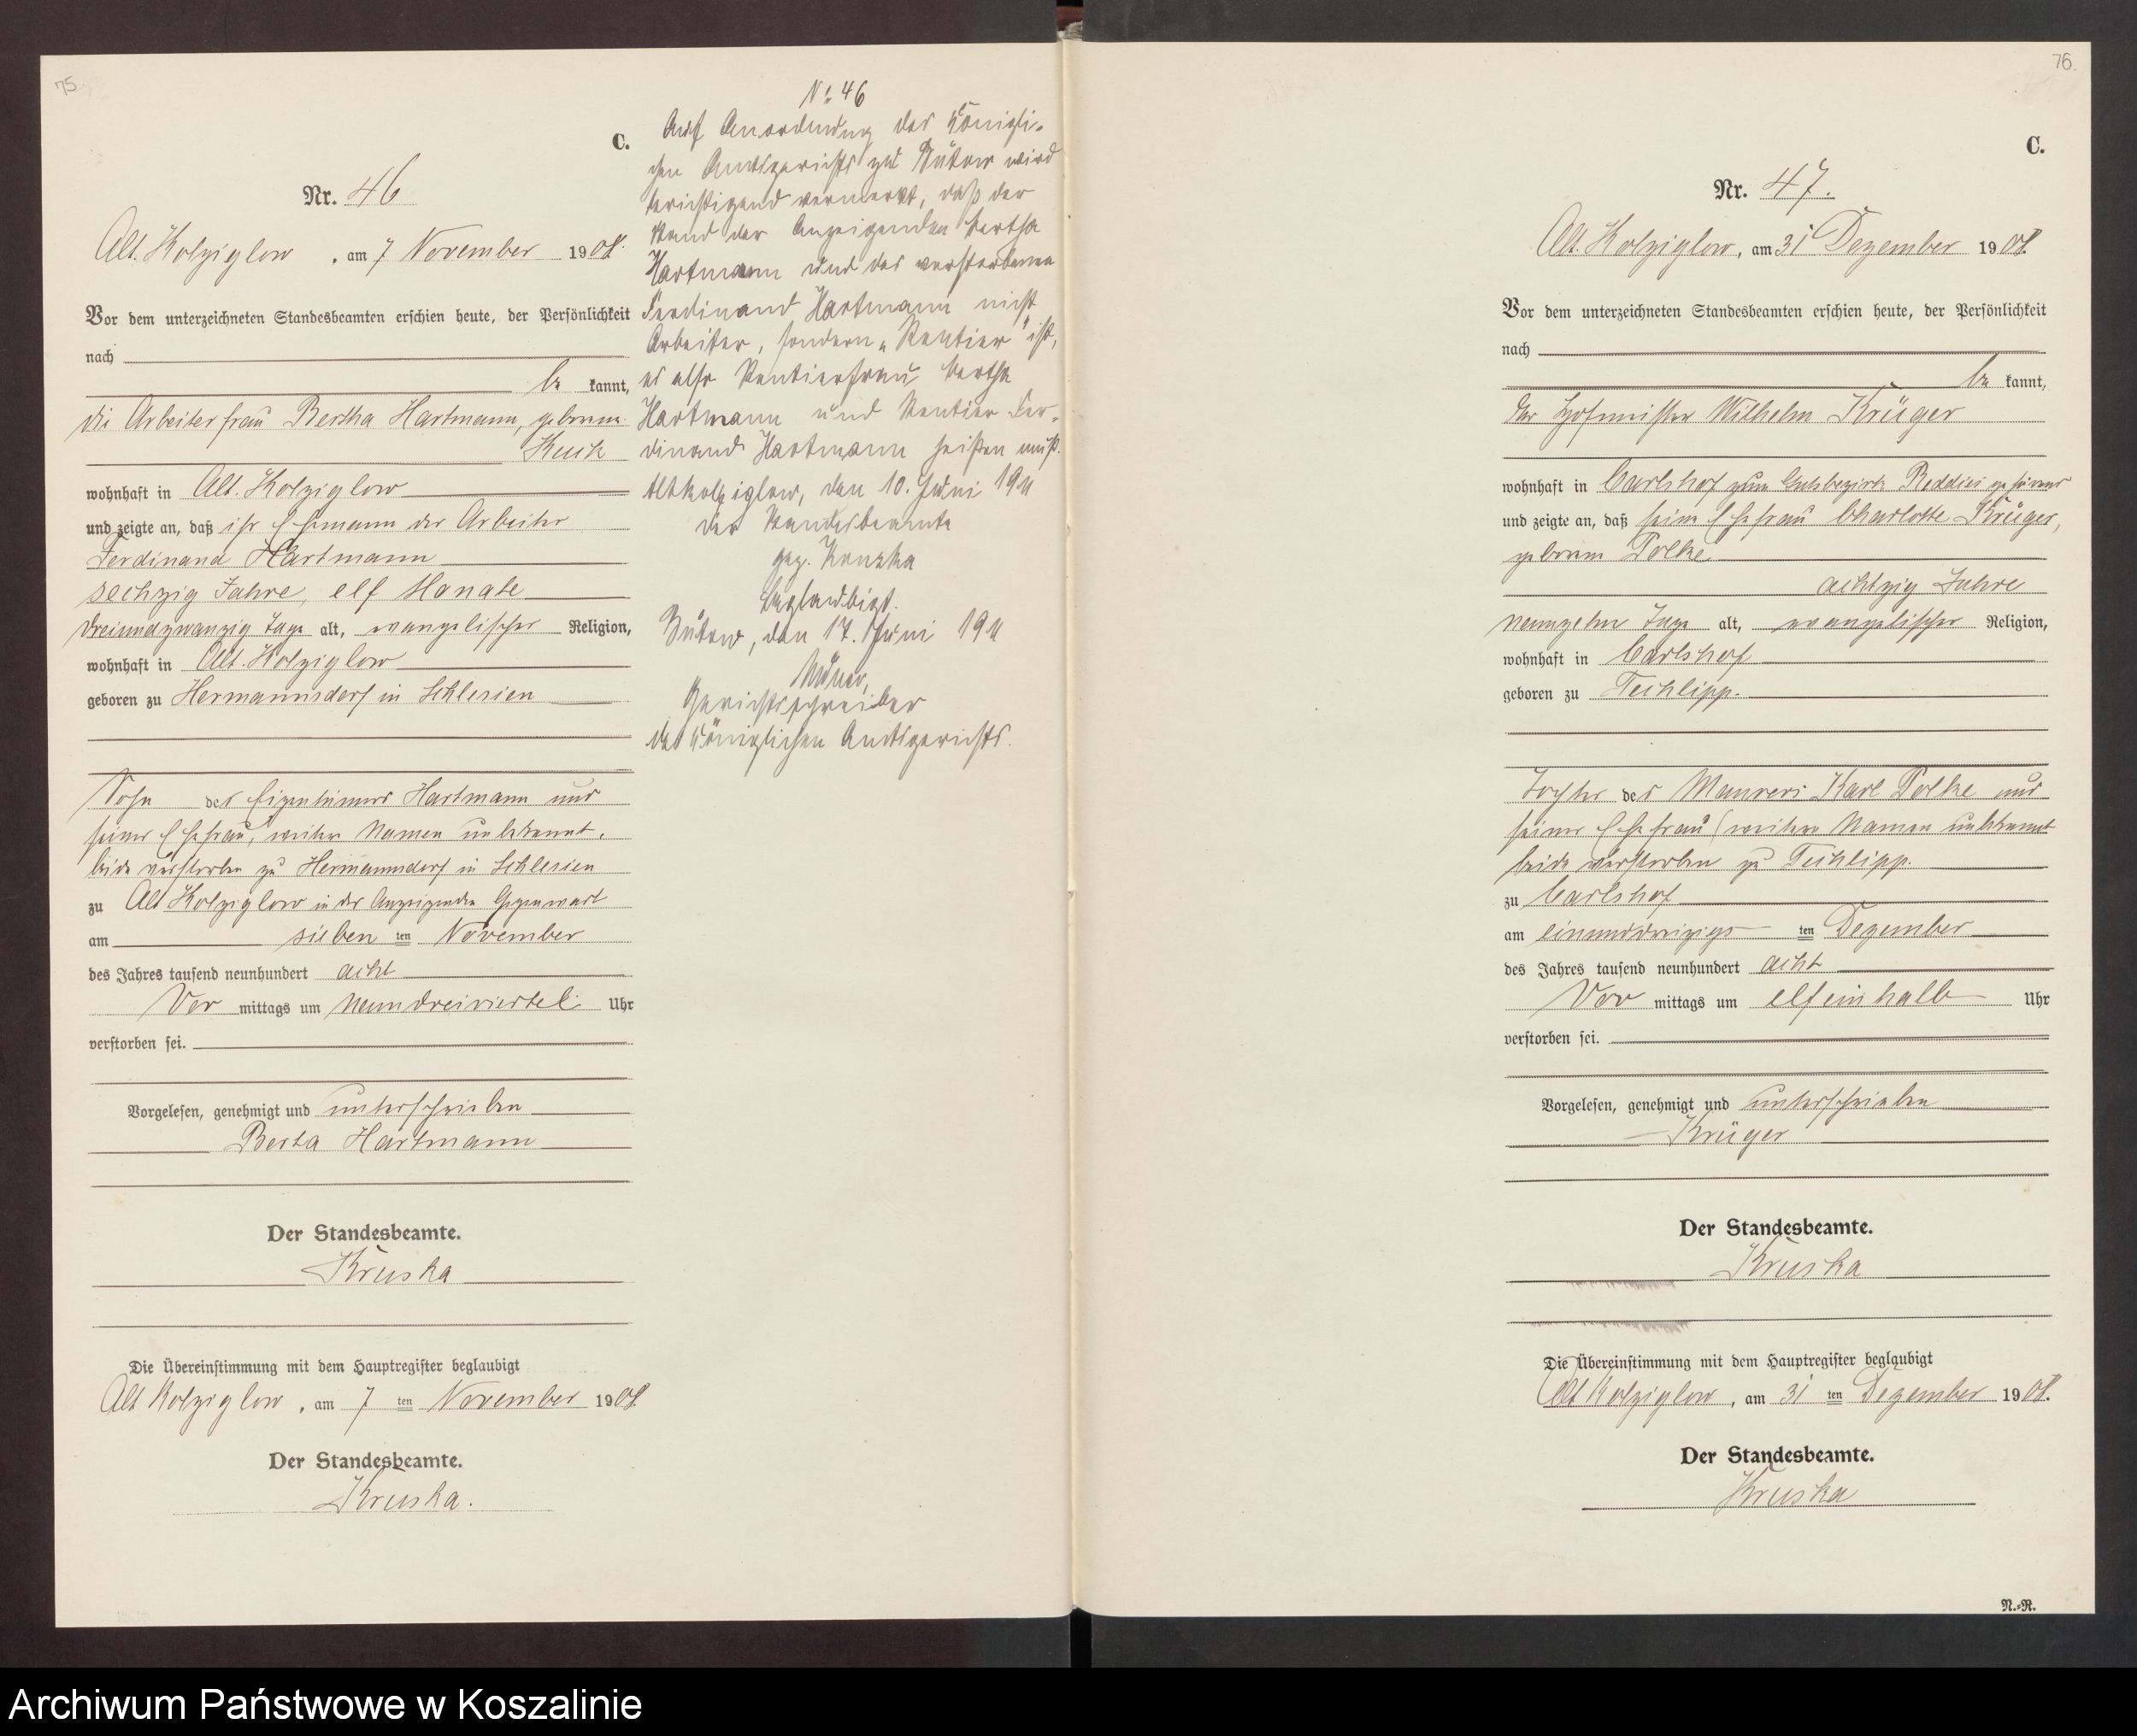 75
C.
Nr. 46
Alt. Kolziglow, am 7 November 1908.
Vor dem unterzeichneten Standesbeamten erschien heute, der Persönlichkeit
nach
be kannt,
die Arbeiterfrau Bertha Hartmann, geborene
Kuik
wohnhaft in Alt. Kolziglow
und zeigte an, daß ihr Ehemann der Arbeiter
Ferdinand Hartmann
sechzig Jahre, elf Monate
dreiundzwanzig Tage alt, evangelischer Religion,
wohnhaft in Alt. Kolziglow
geboren zu Hermannsdorf in Schlesien
Sohn des Eigentümers Hartmann und
seiner Ehefrau, weitere Namen unbekannt,
beide verstorben zu Hermannsdorf in Schlesien
zu Alt Kolziglow in der Anzeigenden Gegenwart
am sieben ten November
des Jahres tausend neunhundert acht
Vor mittags um neundreiviertel Uhr
verstorben sei.
Vorgelesen, genehmigt und unterschrieben
Berta Hartmann
Der Standesbeamte.
Kruska
Die Übereinstimmung mit dem Hauptregister beglaubigt
Alt Kolziglow, am 7 ten November 1908
Der Standesbeamte.
Kruska.
No. 46
Auf Anordnung des Königli-
chen Amtsgerichts zu Bütow wird
berichtigend vermerkt, daß der
Stand der Anzeigenden Bertha
Hartmann und des verstorbenen
Ferdinand Hartmann nicht
Arbeiter, sondern „Rentier" ist,
es also Rentierfrau Bertha
Hartmann und Rentier Fer-
dinand Hartmann heißen muß.
Altkolziglow, den 10. Juni 1911
Der Standesbeamte
gez. Kruska
Beglaubigt.
Bütow, den 17. Juni 1911
Gerichtsschreiber
des Königlichen Amtsgerichts.
76.
C.
Nr. 47.
Alt. Kolziglow, am 31 Dezember 1908.
Vor dem unterzeichneten Standesbeamten erschien heute, der Persönlichkeit
nach
be kannt,
der Hofmeister Wilhelm Krüger
wohnhaft in Carlshof zum Gutsbezirk Reddies gehörend
und zeigte an, daß seine Ehefrau Charlotte Krüger,
geborene Polke
achtzig Jahre
neunzehn Tage alt, evangelischer Religion,
wohnhaft in Carlshof
geboren zu Techlipp.
Tochter des Maurers Karl Polke und
seiner Ehefrau (weitere Namen unbekannt
beide verstorben zu Techlipp.
zu Carlshof
am einunddreizigs ten Dezember
des Jahres tausend neunhundert acht
Vor mittags um elfeinhalb Uhr
verstorben sei.
Vorgelesen, genehmigt und unterschrieben
Krüger
Der Standesbeamte.
Kruska
Die Übereinstimmung mit dem Hauptregister beglaubigt
Alt Kolziglow, am 31 ten Dezember 1908.
Der Standesbeamte.
Kruska
N.-R.
Archiwum Państwowe w Koszalinie